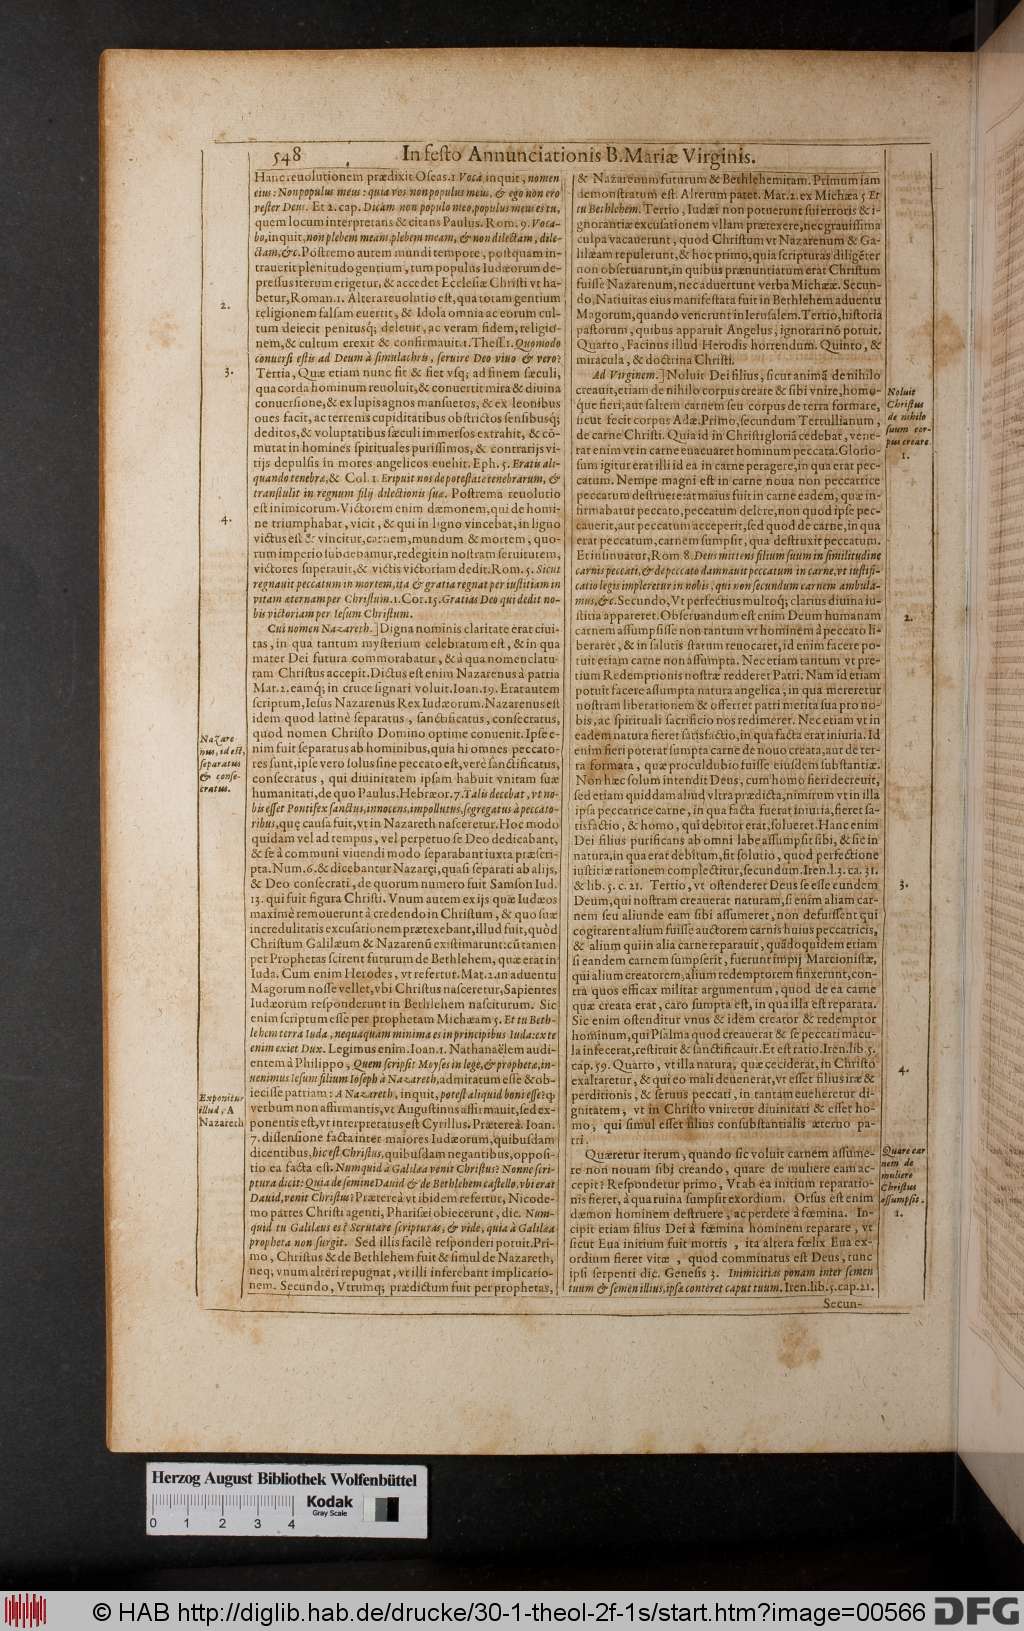 548 In festo Annunciationis B. Mariæ Virginis.
Hanc reuolutionem prædixit Oseas. 1 Voca inquit, nomen
eius: Non populus meus: quia vos non populus meus, & ego non ero
vester Deus. Et 2. cap. Dicam non populo meo, populus meus es tu,
quem locum interpretans & citans Paulus. Rom. 9. Voca-
bo, inquit, non plebem meam, plebem meam, & non dilectam, dile-
ctam, &c. Postremo autem mundi tempore, postquam in-
trauerit plenitudo gentium, tum populus Iudæorum de-
pressus iterum erigetur, & accedet Ecclesiæ Christi vt ha-
betur, Roman. 1. Altera reuolutio est, qua totam gentium
2.
religionem falsam euertit, & Idola omnia ac eorum cul-
tum deiecit penitusq; deleuit, ac veram fidem, religio-
nem, & cultum erexit & confirmauit. 1. Thess. 1. Quomodo
conuersi estis ad Deum à simulachris, seruire Deo viuo & vero?
3.
Tertia, Quæ etiam nunc fit & fiet vsq; ad finem sæculi,
qua corda hominum reuoluit, & conuertit mira & diuina
conuersione, & ex lupis agnos mansuetos, & ex leonibus
oues facit, ac terrenis cupiditatibus obstrictos sensibusq;
deditos, & voluptatibus sæculi immersos extrahit, & cō-
mutat in homines spirituales purissimos, & contrarijs vi-
tijs depulsis in mores angelicos euehit. Eph. 5. Eratis ali-
quando tenebræ, & Col. 1. Eripuit nos de potestate tenebrarum, &
transtulit in regnum filij dilectionis suæ. Postrema reuolutio
4.
est inimicorum. Victorem enim dæmonem, qui de homi-
ne triumphabat, vicit, & qui in ligno vincebat, in ligno
victus est & vincitur, carnem, mundum & mortem, quo-
rum imperio subdebamur, redegit in nostram seruitutem,
victores superauit, & victis victoriam dedit. Rom. 5. Sicut
regnauit peccatum in mortem, ita & gratia regnat per iustitiam in
vitam æternam per Christum. 1. Cor. 15. Gratias Deo qui dedit no-
bis victoriam per Iesum Christum.
Cui nomen Nazareth.] Digna nominis claritate erat ciui-
tas, in qua tantum mysterium celebratum est, & in qua
mater Dei futura commorabatur, & à qua nomenclatu-
ram Christus accepit. Dictus est enim Nazarenus à patria
Mat. 2. eamq; in cruce signari voluit. Ioan. 19. Erat autem
scriptum, Iesus Nazarenus Rex Iudæorum. Nazarenus est
idem quod latinè separatus, sanctificatus, consecratus,
quod nomen Christo Domino optime conuenit. Ipse e-
Nazare-
nus, id est,
separatus
& conse-
cratus.
nim fuit separatus ab hominibus, quia hi omnes peccato-
res sunt, ipse vero solus sine peccato est, verè sanctificatus,
consecratus, qui diuinitatem ipsam habuit vnitam suæ
humanitati, de quo Paulus. Hebræor. 7. Talis decebat, vt no-
bis esset Pontifex sanctus, innocens, impollutus, segregatus à peccato-
ribus, quę causa fuit, vt in Nazareth nasceretur. Hoc modo
quidam vel ad tempus, vel perpetuo se Deo dedicabant,
& se à communi viuendi modo separabant iuxta præscri-
pta. Num. 6. & dicebantur Nazaręi, quasi separati ab alijs,
& Deo consecrati, de quorum numero fuit Samson Iud.
13. qui fuit figura Christi. Vnum autem ex ijs quæ Iudæos
maximè remouerunt à credendo in Christum, & quo suæ
incredulitatis excusationem prætexebant, illud fuit, quòd
Christum Galilæum & Nazarenū existimarunt: cū tamen
per Prophetas scirent futurum de Bethlehem, quæ erat in
Iuda. Cum enim Herodes, vt refertur. Mat. 2. in aduentu
Magorum nosse vellet, vbi Christus nasceretur, Sapientes
Iudæorum responderunt in Bethlehem nasciturum. Sic
enim scriptum esse per prophetam Michæam 5. Et tu Beth-
lehem terra Iuda, nequaquam minima es in principibus Iuda: ex te
enim exiet Dux. Legimus enim. Ioan. 1. Nathanaëlem audi-
entem à Philippo, Quem scripsit Moyses in lege, & prophetæ, in-
uenimus Iesum filium Ioseph à Nazareth, admiratum esse & ob-
iecisse patriam: A Nazareth, inquit, potest aliquid boni esse? q
Exponitur
illud, A
Nazareth
verbum non affirmantis, vt Augustinus affirmauit, sed ex-
ponentis est, vt interpretatus est Cyrillus. Prætereà. Ioan.
7. dissensione facta inter maiores Iudæorum, quibusdam
dicentibus, hic est Christus, quibusdam negantibus, opposi-
tio ea facta est. Numquid à Galilæa venit Christus? Nonne scri-
ptura dicit: Quia de semine Dauid & de Bethlehem castello, vbi erat
Dauid, venit Christus? Prætereà vt ibidem refertur, Nicode-
mo partes Christi agenti, Pharisæi obiecerunt, dic. Num-
quid tu Galilæus es? Scrutare scripturas, & vide, quia à Galilæa
propheta non surgit. Sed illis facilè responderi potuit. Pri-
mo, Christus & de Bethlehem fuit & simul de Nazareth,
neq; vnum alteri repugnat, vt illi inferebant implicatio-
nem. Secundo, Vtrumq; prædictum fuit per prophetas,
& Nazarenum futurum & Bethlehemitam. Primum iam
demonstratum est. Alterum patet. Mat. 2. ex Michæa 5 Et
tu Bethlehem. Tertio, Iudæi non potuerunt sui erroris & i-
gnorantiæ excusationem vllam prætexere, nec grauissima
culpa vacauerunt, quod Christum vt Nazarenum & Ga-
lilæam repulerunt, & hoc primo, quia scripturas diligēter
non obseruarunt, in quibus prænunciatum erat Christum
fuisse Nazarenum, nec aduertunt verba Michææ. Secun-
do, Natiuitas eius manifestata fuit in Bethlehem aduentu
Magorum, quando venerunt in Ierusalem. Tertio, historia
pastorum, quibus apparuit Angelus, ignorari nō potuit.
Quarto, Facinus illud Herodis horrendum. Quinto, &
miracula, & doctrina Christi.
Ad Virginem.] Noluit Dei filius, sicut animā de nihilo
creauit, etiam de nihilo corpus creare & sibi vnire, homo-
Noluit
Christus
de nihilo
suum cor-
pus creare.
1.
que fieri, aut saltem carnem seu corpus de terra formare,
sicut fecit corpus Adæ. Primo, secundum Tertullianum,
de carne Christi. Quia id in Christi gloriā cedebat, vene-
rat enim vt in carne euacuaret hominum peccata. Glorio-
sum igitur erat illi id ea in carne peragere, in qua erat pec-
catum. Nempe magni est in carne noua non peccatrice
peccatum destruere: at maius fuit in carne eadem, quæ in-
firmabatur peccato, peccatum delere, non quod ipse pec-
cauerit, aut peccatum acceperit, sed quod de carne, in qua
erat peccatum, carnem sumpsit, qua destruxit peccatum.
Et insinuatur, Rom 8. Deus mittens filium suum in similitudine
carnis peccati, & de peccato damnauit peccatum in carne, vt iustifi-
catio legis impleretur in nobis, qui non secundum carnem ambula-
mus, &c. Secundo, Vt perfectius multoq; clarius diuina iu-
2.
stitia appareret. Obseruandum est enim Deum humanam
carnem assumpsisse non tantum vt hominem à peccato li-
beraret, & in salutis statum reuocaret, id enim facere po-
tuit etiam carne non assumpta. Nec etiam tantum vt pre-
tium Redemptionis nostræ redderet Patri. Nam id etiam
potuit facere assumpta natura angelica, in qua mereretur
nostram liberationem & offerret patri merita sua pro no-
bis, ac spirituali sacrificio nos redimeret. Nec etiam vt in
eadem natura fieret satisfactio, in qua facta erat iniuria. Id
enim fieri poterat sumpta carne de nouo creata, aut de ter-
ra formata, quæ procul dubio fuisse eiusdem substantiæ.
Non hæc solum intendit Deus, cum homo fieri decreuit,
sed etiam quiddam aliud vltra prædicta, nimirum vt in illa
ipsa peccatrice carne, in qua facta fuerat iniuria, fieret sa-
tisfactio, & homo, qui debitor erat, solueret. Hanc enim
Dei filius purificans ab omni labe assumpsit sibi, & sic in
natura, in qua erat debitum, fit solutio, quod perfectione
iustitiæ rationem complectitur, secundum. Iren. l. 3. ca. 31.
& lib. 5. c. 21. Tertio, vt ostenderet Deus se esse eundem
3.
Deum, qui nostram creauerat naturam, si enim aliam car-
nem seu aliunde eam sibi assumeret, non defuissent qui
cogitarent alium fuisse auctorem carnis huius peccatricis,
& alium qui in alia carne reparauit, quādoquidem etiam
si eandem carnem sumpserit, fuerunt impij Marcionistæ,
qui alium creatorem, alium redemptorem finxerunt, con-
tra quos efficax militat argumentum, quod de ea carne
quæ creata erat, caro sumpta est, in qua illa est reparata.
Sic enim ostenditur vnus & idem creator & redemptor
hominum, qui Psalma quod creauerat & se peccati macu-
la infecerat, restituit & sanctificauit. Et est ratio. Iren. lib. 5.
cap. 59. Quarto, vt illa natura, quæ ceciderat, in Christo
4.
exaltaretur, & qui eo mali deuenerat, vt esset filius iræ &
perditionis, & seruus peccati, in tantam eueheretur di-
gnitatem, vt in Christo vniretur diuinitati & esset ho-
mo, qui simul esset filius consubstantialis æterno pa-
tri.
Quæretur iterum, quando sic voluit carnem assume-
Quare car
nem de
muliere
Christus
assumpsit.
1.
re non nouam sibi creando, quare de muliere eam ac-
cepit? Respondetur primo, Vt ab ea initium reparatio-
nis fieret, à qua ruina sumpsit exordium. Orsus est enim
dæmon hominem destruere, ac perdere à fœmina. In-
cipit etiam filius Dei à fœmina hominem reparare, vt
sicut Eua initium fuit mortis, ita altera fœlix Eua ex-
ordium fieret vitæ, quod comminatus est Deus, tunc
ipsi serpenti dic. Genesis 3. Inimicitias ponam inter semen
tuum & semen illius, ipsa conteret caput tuum. Iren. lib. 5. cap. 21.
Secun-
Herzog August Bibliothek Wolfenbüttel
Kodak
Gray Scale
0 1 2 3 4
© HAB http://diglib.hab.de/drucke/30-1-theol-2f-1s/start.htm?image=00566 DFG